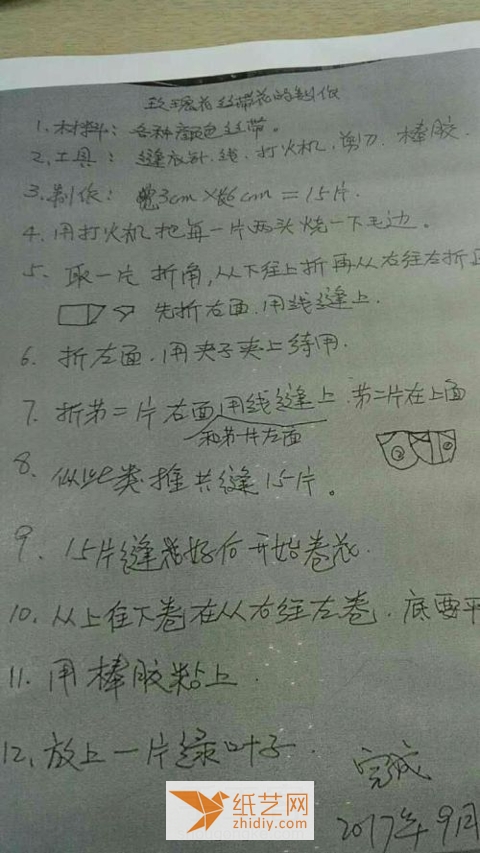 玫瑰花丝带花的制作
1、材料：各种颜色丝带。
2、工具：缝衣针、线、打火机、剪刀、棒胶
3、制作：宽3cm×长6cm=15片.
4、用打火机把每一片两头烧一下毛边。
5、取一片折角,从下往上折再从右往左折
先折右面.用线缝上.
6、折左面.用夹子夹上待用.
7、折第二片右面用线缝上.第二片在上面
和第一片左面
② ①
8、以此类推共缝15片。
9、15片缝好后开始卷花.
10、从上往下卷在从右往左卷.底要平
11、用棒胶粘上.
12、放上一片绿叶子.
完成
2017年9月
纸艺网
zhidiy.com